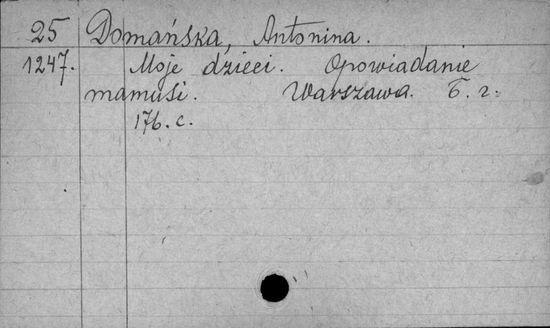 25 Domańska, Antonina.
1247. Moje dzieci. Opowiadanie
mamusi. Warszawa. Б. г.
176. с.